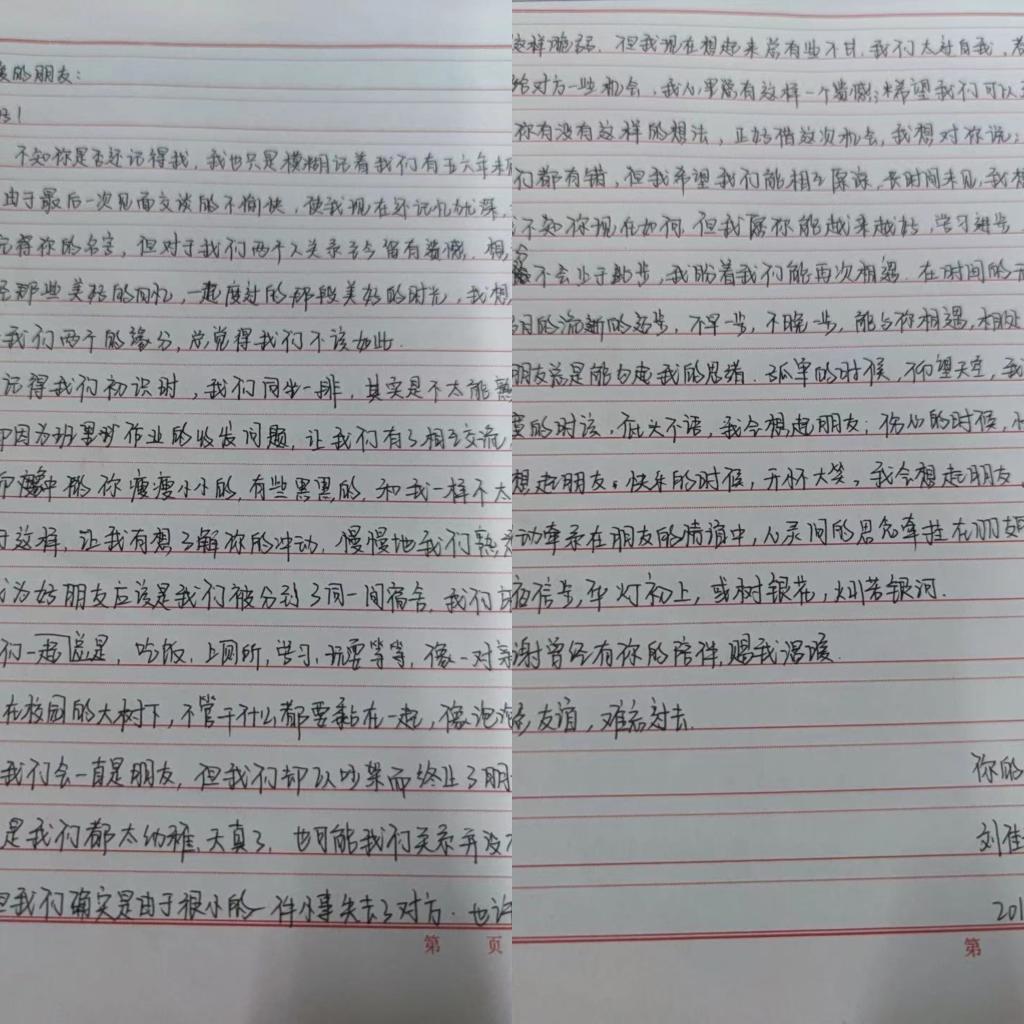 的朋友：
！
不知你是否还记得我，我也只是模糊记着我们有五六年未
由于最后一次见面交谈的不愉快，使我现在还记忆犹深，
得你的名字，但对于我们两个人关系至今留有遗憾．想
那些美好的回忆，一起度过的那段美好的时光，我想
我们两个的缘分，总觉得我们不该如此．
记得我们初识时，我们同坐一排，其实是不太能熟
因为班里对作业的收发问题，让我们有了相互交流，
印象中那你瘦瘦小小的，有些黑黑的，和我一样不太
这样，让我有想了解你的冲动，慢慢地我们熟
为好朋友应该是我们被分到了同一间宿舍，我们
们一起总是，吃饭，上厕所，学习，玩耍等等，像一对
在校园的大树下，不管干什么都要黏在一起，像泡泡
我们会一直是朋友，但我们却以吵架而终止了朋
是我们都太幼稚，天真了，也可能我们关系并没
但我们确实是由于很小的一件小事失去了对方．也许
第 页
这样脆弱．但我现在想起来总有些不甘，我们太过自我，
给对方一些机会，我心里总有这样一个遗憾；希望我们可以
你有没有这样的想法，正好借这次机会，我想对你说：
们都有错，但我希望我们能相互原谅，长时间未见，我想
不知你现在如何，但我愿你能越来越好，学习进步，
不会止于此步，我盼着我们能再次相遇．在时间的
的流逝的名步，不早一步，不晚一步，能与你相遇，相处
朋友总是能勾起我的思绪．孤单的时候，仰望天空，我
的时该，低头不语，我会想起朋友；伤心的时候，
想起朋友。快乐的时候，开怀大笑，我会想起朋友．
动牵系在朋友的情谊中，心灵间的思念牵挂在朋友
夜信步，华灯初上，或树银花，灿若银河．
谢曾经有你的陪伴，赐我温暖．
友谊，难忘过去．
你的
刘佳
201
第